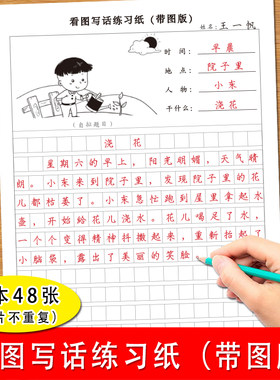 看图写话练习纸（带图版）
姓名：王一帆
时间：早晨
地点：院子里
人物：小东
干什么：浇花
（自拟题目）
浇花
星期六的早上，阳光明媚，天气晴
朗。小东来到院子里，发现院子里的花
儿都枯萎了。小东急忙跑到屋里拿起水
壶，开始给花儿浇水。花儿喝足了水，
一个个变得精神抖擞起来，重新抬起了
小脑袋，露出了美丽的笑脸
本48张
片不重复）
图写话练习纸（带图版